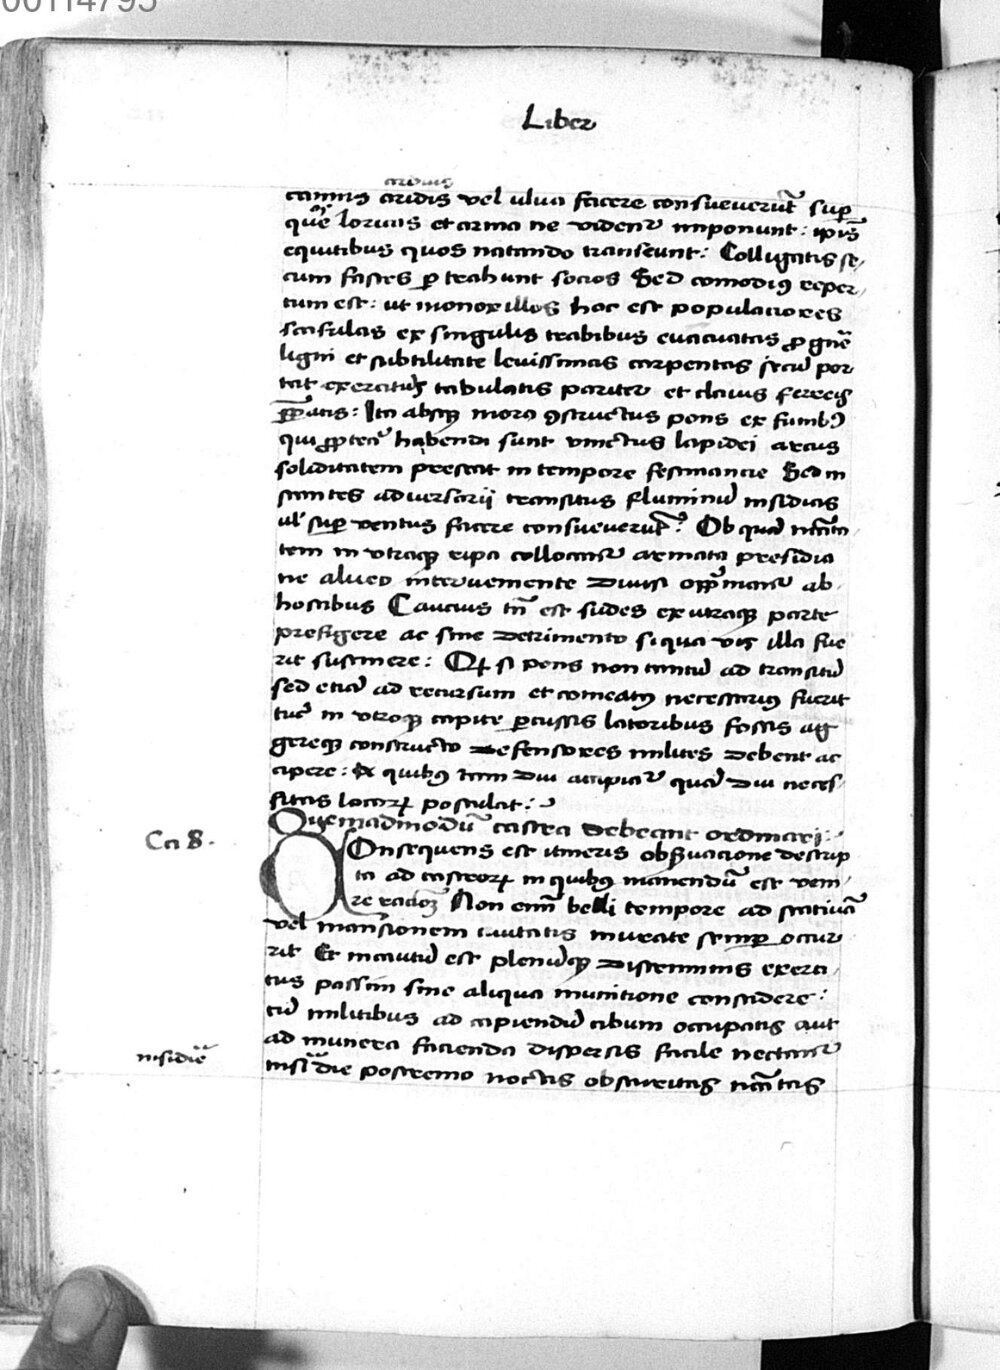 00114795
Liber
arduis
cannis aridis vel ulua facere consueuerūt sup
quē loricas et arma ne videnť imponunt : ipīs
equitibus quos natando transeunt : Colligatis se,
cum fasces p trahunt socios Sed comodiꝰ reper,
tum est : ut monoxillos hoc est populaciores
scafulas ex singulis trabibus euacuatas ꝓ gnē
ligni et subtilitate leuissimas carpentas secū por
tat exercitus tabulatis pariter et clauis ferreis
p̄patis : Ita absqꝫ mora ꝯstructus pons ex funibꝰ
qui ꝓpterea habendi sunt vinctus lapidei arcus
soliditatem prestat in tempore festinancie Sed in
stantes aduersarij transitus fluminū insidias
ul' super ventus facere consueuerūt : Ob quā nccīta
tem in vtraqꝫ ripa collocanť armata presidia
ne alueo interueniente diuisi opp̄manť ab
hostibus Caucius tn̄ est sudes ex utraqꝫ parte
prefigere ac sine detrimento si qua vis illa fue
rit sustinere : Qꝫ si pons non tantū ad transitū
sed etiā ad recursum et comeatꝰ necessariꝰ fuerit
tūc in vtroqꝫ capite ꝑcussis latoribus fossis ag
gereqꝫ constructo defensores milites debent ac
cipere : A quibꝰ tam diu accipiať quā diu neces,
sitas locoꝝ postulat :
Quemadmodū castra debeant ordinari :
Ca 8 .
Onsequens est itineris obseruacione descrip
ta ad castroꝝ in quibꝰ manendū est veni,
re racioꝫ Non enī belli tempore ad statiuā
vel mansionem ciuitatis murate semꝑ occur
rit Et incautū est plenūqꝫ discriminis exerci
tus passim sine aliqua munitione considere :
cū militibus ad capiendū cibum occupatis aut
ad munera facienda dispersis facile nectanť
insidiē
insidie postremo noctis obscuritas nccītas